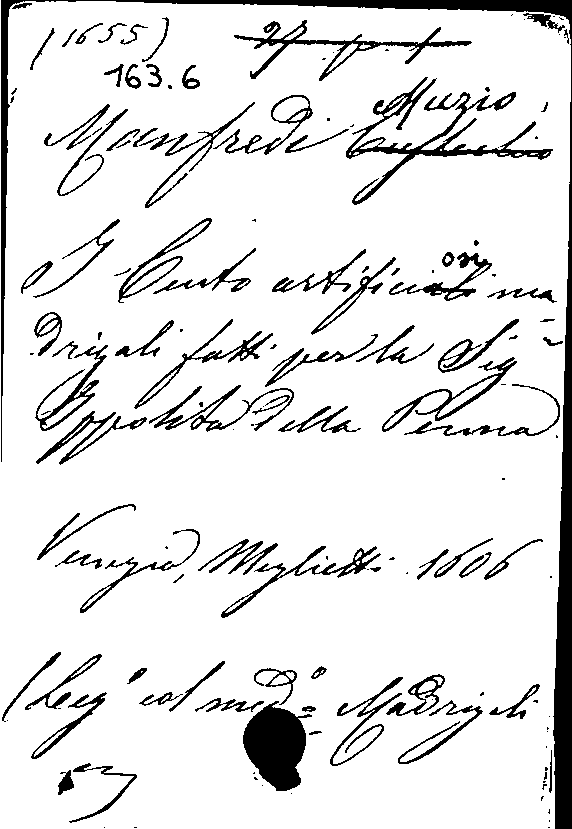 (1655) 27. p. 1
163.6
Muzio,
Manfredi Guglielmo
I Cento artificiali osi ma-
drigali fatti per la Sig
Ippolita della Penna
Venezia, Meglietti 1606
(Leg° col med° = Madrigali